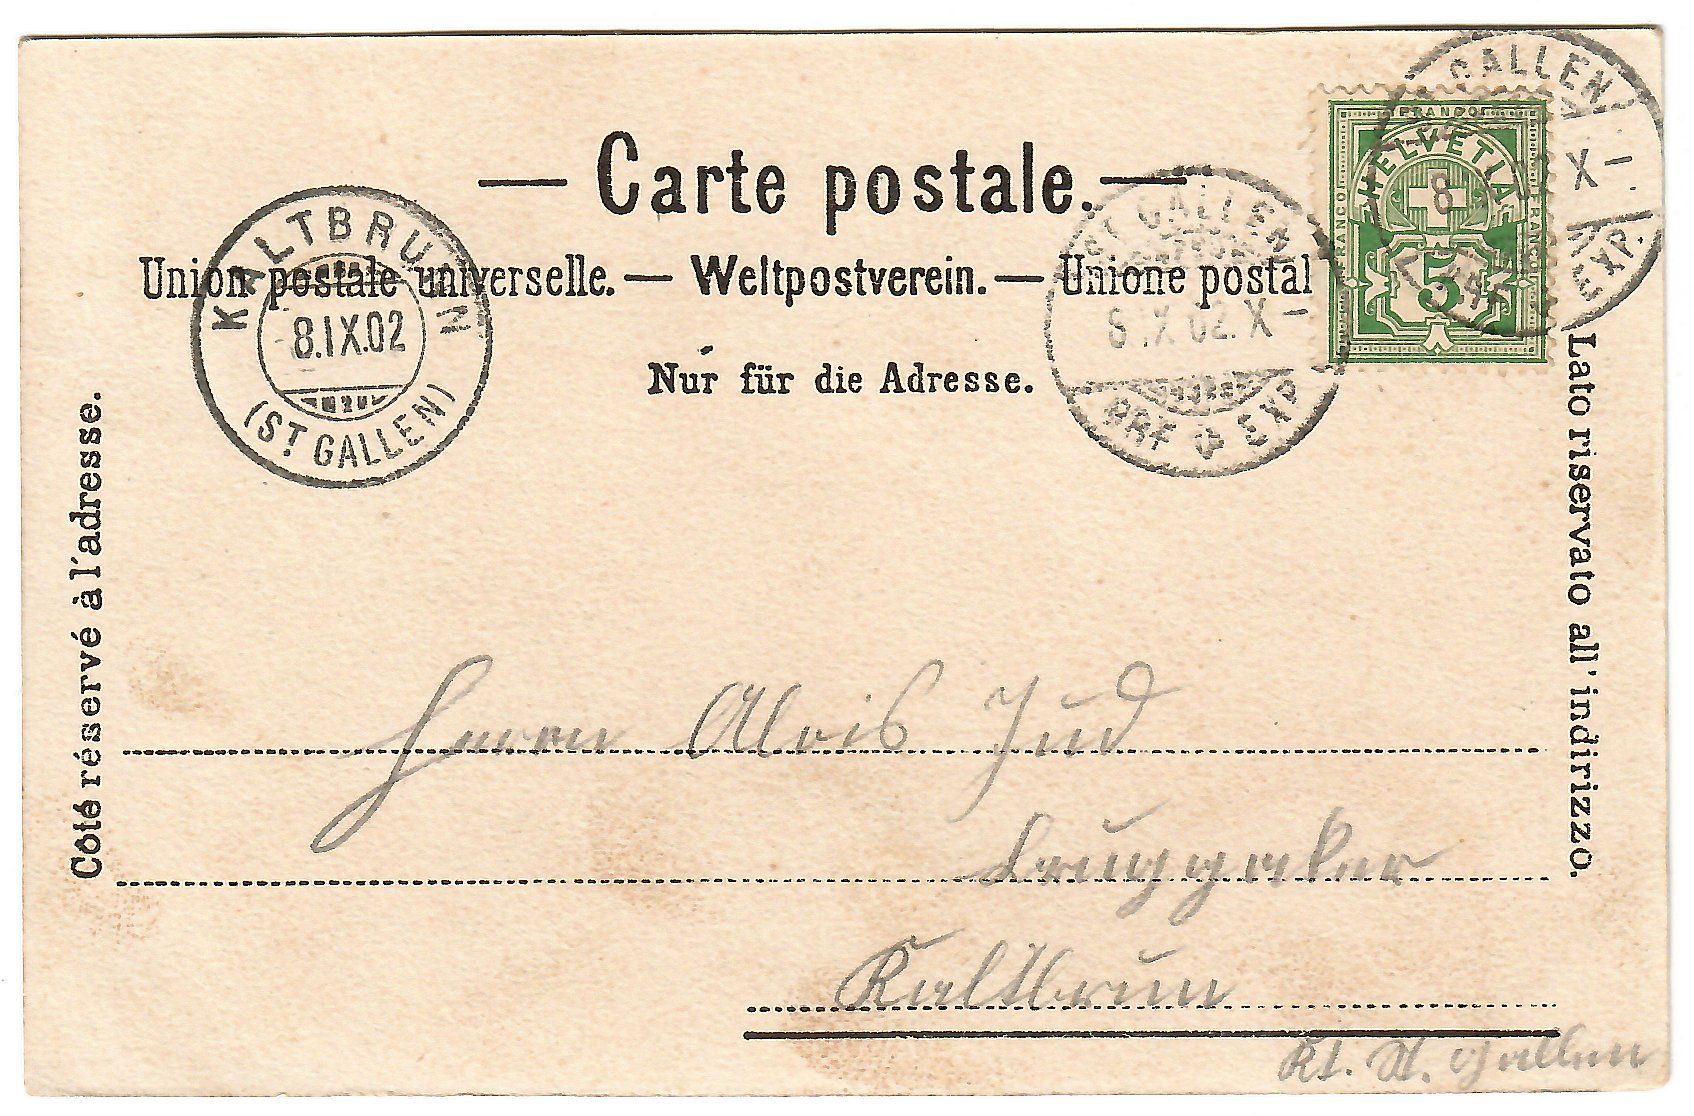 — Carte postale. —
Union postale universelle. — Weltpostverein. — Unione postal
Nur für die Adresse.
Côté réservé à l'adresse.
Lato riservato all'indirizzo.
KALTBRUNN
8.IX.02
(ST. GALLEN)
ST. GALLEN
8.IX.02.X-
BRF EXP.
GALLEN
8 X-
EXP.
FRANCO
HELVETIA
FRANCO
FRANCO
5
Herrn Alois Jud
Kaltbrun
Kt. St. Gallen